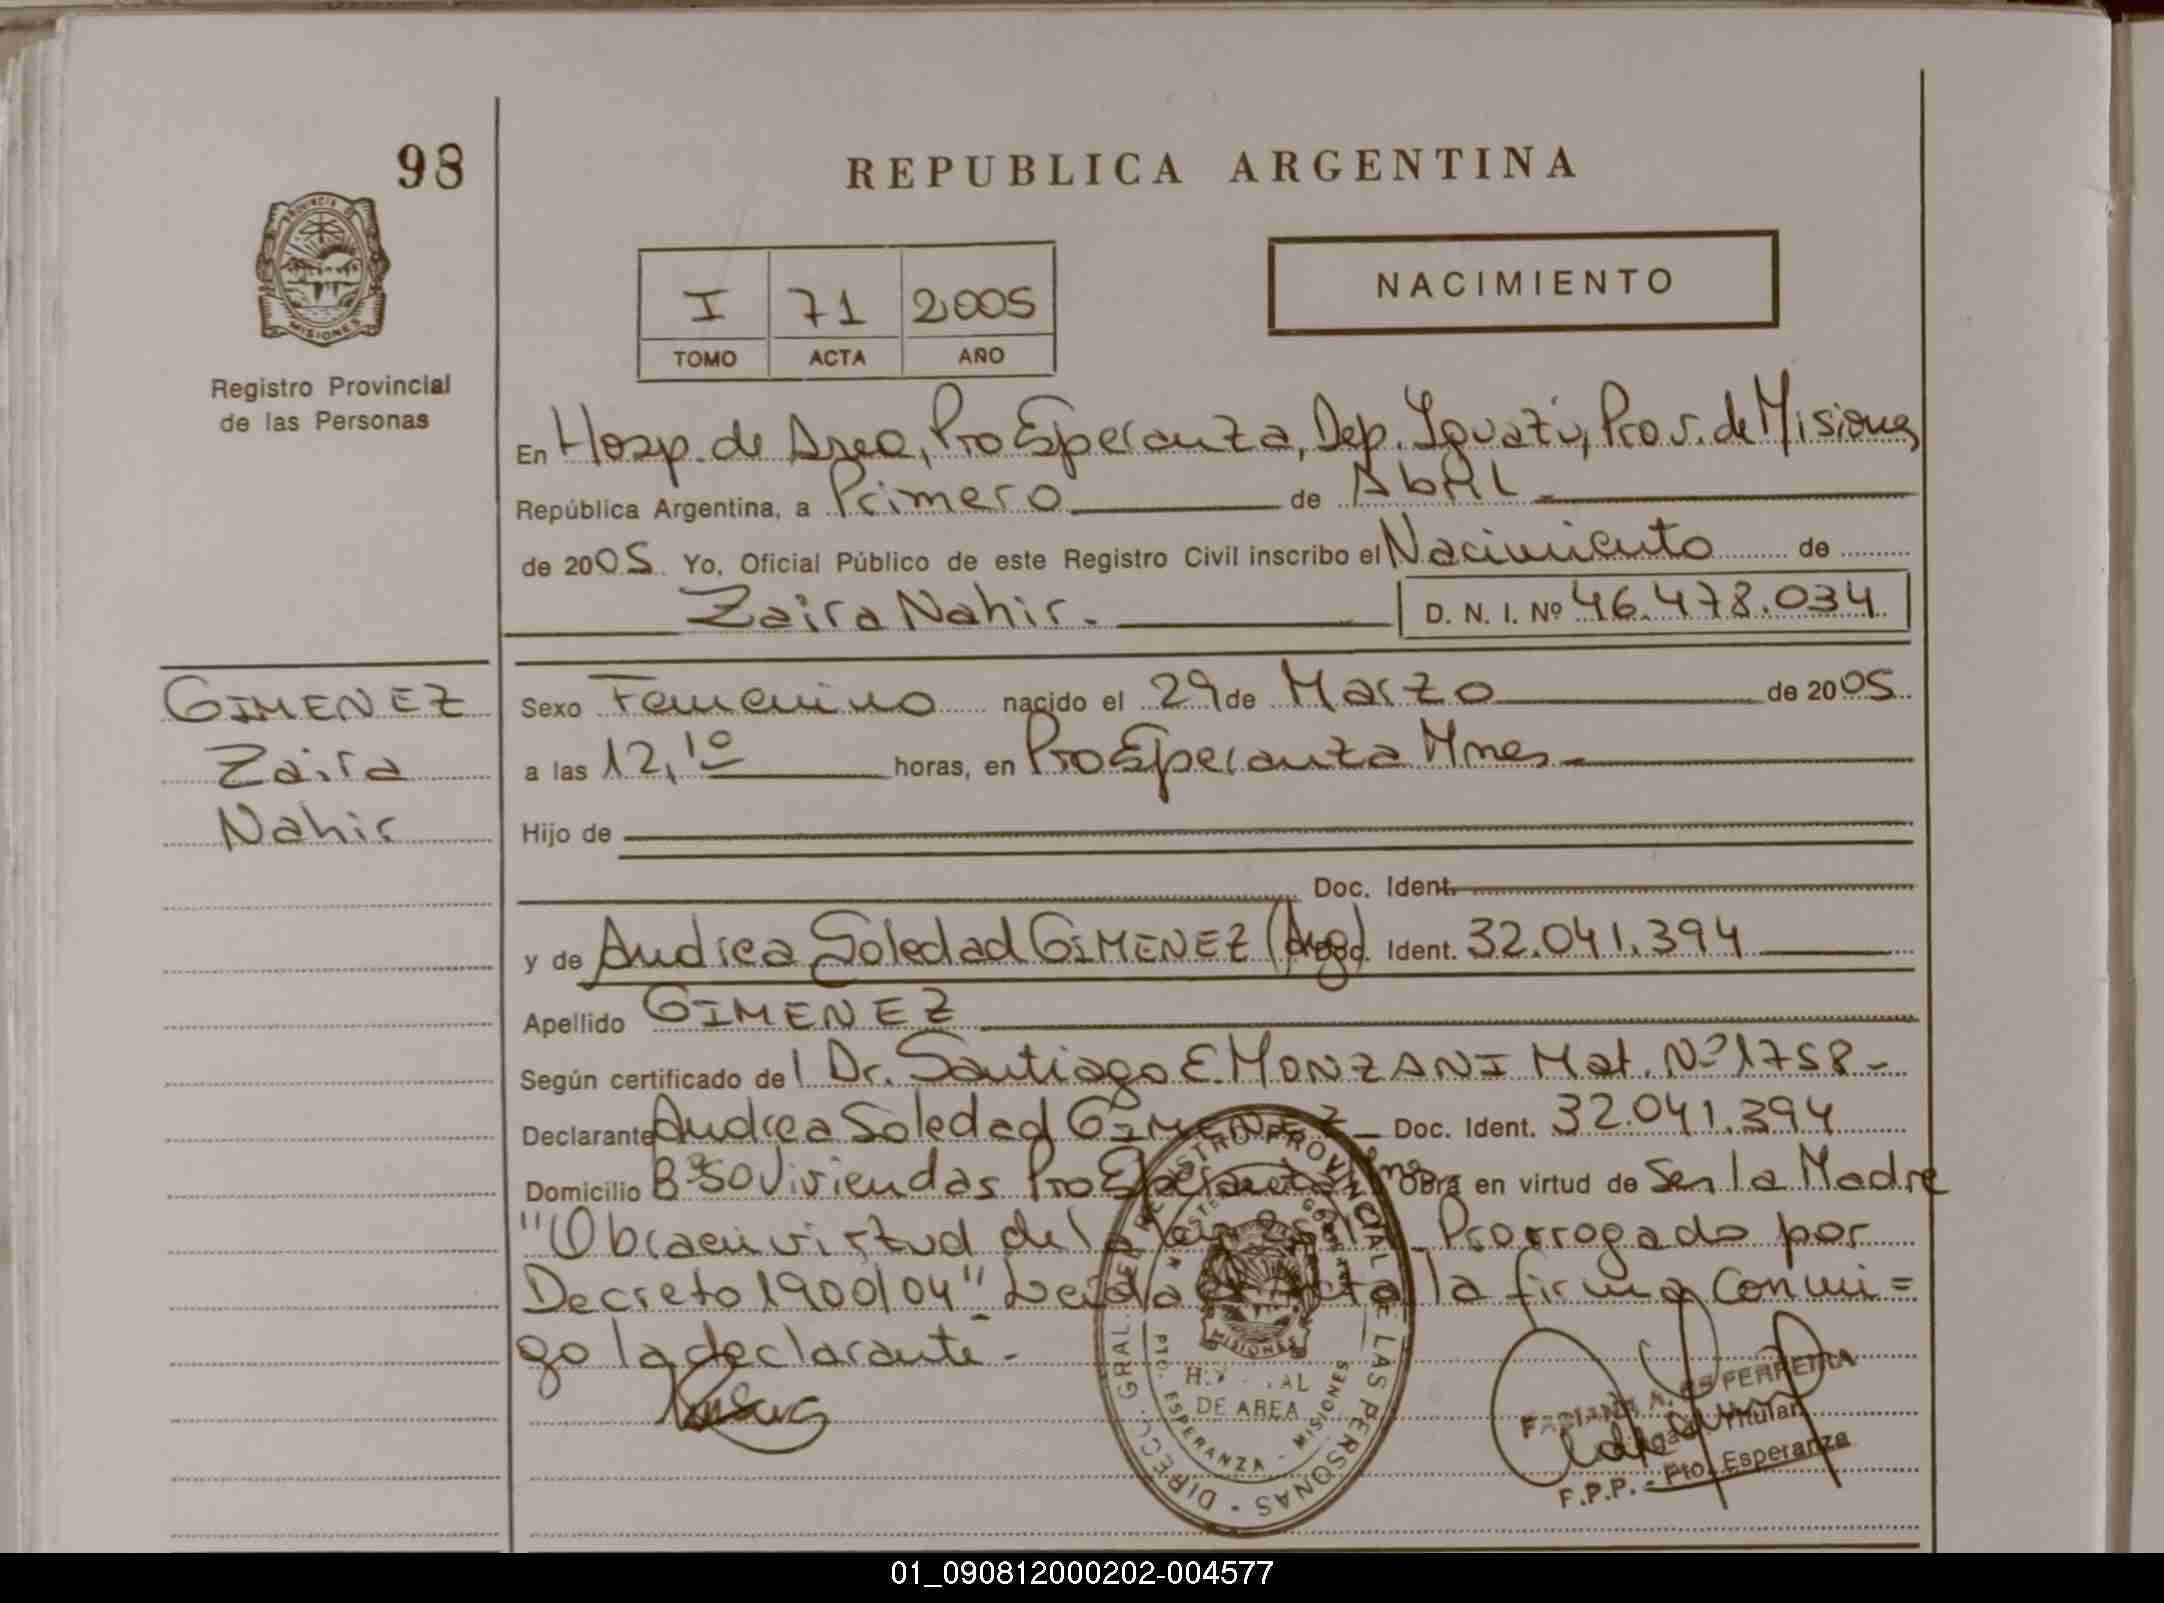 98
REPUBLICA ARGENTINA
PROVINCIA DE
MISIONES
Registro Provincial
de las Personas
I 71 2005
TOMO ACTA AÑO
NACIMIENTO
En Hosp. de Area, Pto Esperanza, Dep. Iguazú, Prov. de Misiones
República Argentina, a Primero de Abril
de 2005 Yo, Oficial Público de este Registro Civil inscribo el Nacimiento de
Zaira Nahir. D. N. I. Nº 46.478.034
GIMENEZ
Zaira
Nahir
Sexo Femenino nacido el 29 de Marzo de 2005
a las 12,10 horas, en Pto Esperanza Mnes
Hijo de
Doc. Ident.
y de Andrea Soledad GIMENEZ (Arg) Doc. Ident. 32.041.394
Apellido GIMENEZ
Según certificado del Dr. Santiago E. MONZANI Mat. Nº 1758-
Declarante Andrea Soledad GIMENEZ Doc. Ident. 32.041.394
Domicilio Bº 50 Viviendas Pto Esperanza Mnes Obra en virtud de Ser la Madre
"Obra en virtud de la Ley Prorrogado por
Decreto 1900/04" Leida el Acta la firma conmi=
go la declarante-
DIRECC. GRAL. DEL REGISTRO PROVINCIAL DE LAS PERSONAS
MISIONES
DE AREA
PTO. ESPERANZA - MISIONES
FERREIRA
Titular
F.P.P. - Pto. Esperanza
01_090812000202-004577